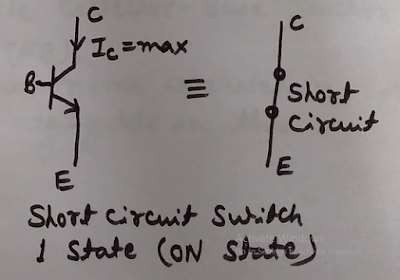 C
I_C = max
B
E
≡
C
Short
Circuit
E
Short Circuit Switch
1 State (ON State)